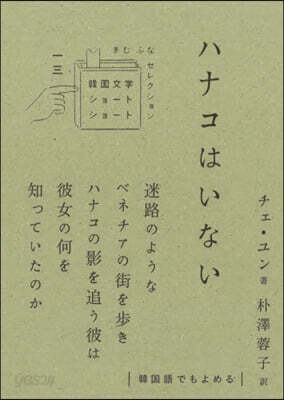 ハナコはいない
チェ・ユン 著 朴澤蓉子 訳
きむ ふな セレクション
一三
韓国文学
ショート
ショート
迷路のような
ベネチアの街を歩き
ハナコの影を追う彼は
彼女の何を
知っていたのか
韓国語でもよめる
yes24